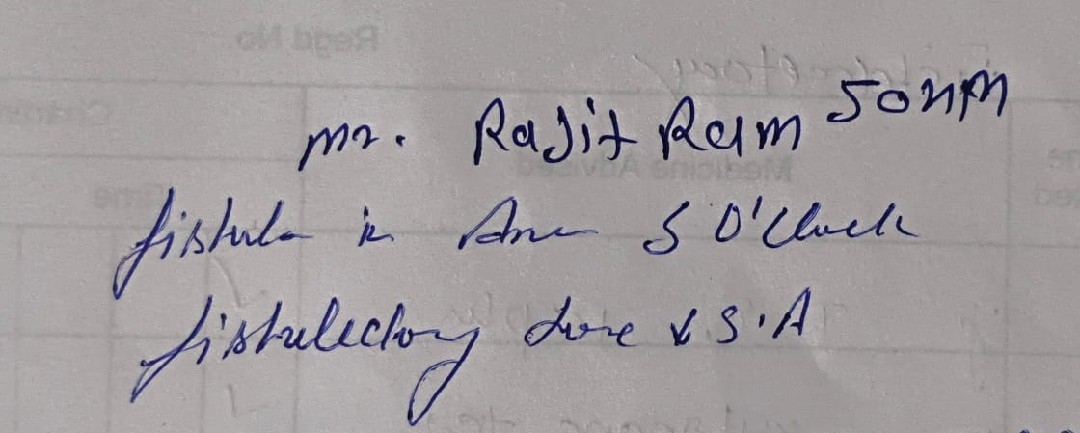 Regd No
Medicine Advised
Time
mr. Rajit Ram 50 M
fistula in Ano 5 O'Clock
fistulectomy done S.A